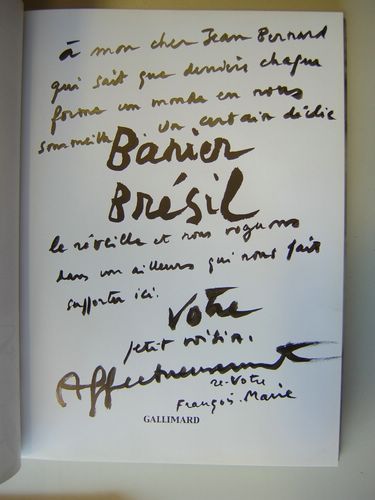 à mon cher Jean Bernard
qui sait que derrière chaque
forme un monde en nous
sommeille. Un certain déclic
Banier
Brésil
le réveille et nous voguons
dans un ailleurs qui nous fait
supporter ici.
Votre
petit voisin.
Affectueusement
re-Votre
François-Marie
GALLIMARD